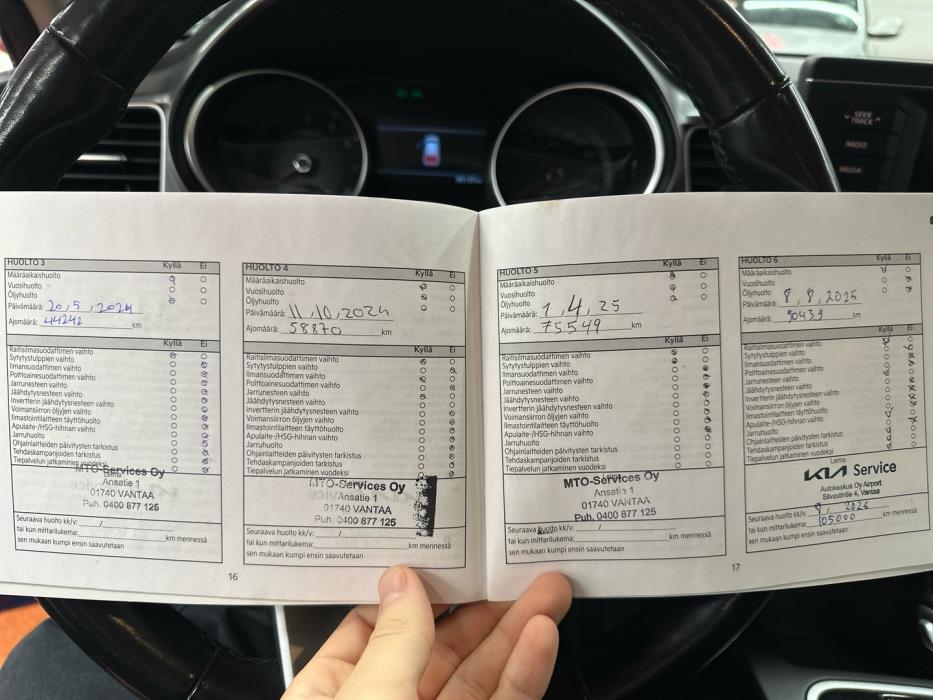 SEEK
TRACK
RADIO
MEDIA
HUOLTO 3 Kyllä Ei
Määräaikaishuolto
Vuosihuolto
Öljyhuolto
Päivämäärä: 20,5,2024
Ajomäärä: 44242 km
Kyllä Ei
Raitisilmasuodattimen vaihto
Sytytystulppien vaihto
Ilmansuodattimen vaihto
Polttoainesuodattimen vaihto
Jarrunesteen vaihto
Jäähdytysnesteen vaihto
Invertterin jäähdytysnesteen vaihto
Voimansiirron öljyjen vaihto
Ilmastointilaitteen täyttöhuolto
Apulaite-/HSG-hihnan vaihto
Jarruhuolto
Ohjainlaitteiden päivitysten tarkistus
Tehdaskampanjoiden tarkistus
Tiepalvelun jatkaminen vuodeksi
MTO-Services Oy
Ansatie 1
01740 VANTAA
Puh. 0400 877 125
Seuraava huolto kk/v: /
tai kun mittarilukema: km mennessä
sen mukaan kumpi ensin saavutetaan
16
HUOLTO 4 Kyllä Ei
Määräaikaishuolto
Vuosihuolto
Öljyhuolto
Päivämäärä: 11,10,2024
Ajomäärä: 58870 km
Kyllä Ei
Raitisilmasuodattimen vaihto
Sytytystulppien vaihto
Ilmansuodattimen vaihto
Polttoainesuodattimen vaihto
Jarrunesteen vaihto
Jäähdytysnesteen vaihto
Invertterin jäähdytysnesteen vaihto
Voimansiirron öljyjen vaihto
Ilmastointilaitteen täyttöhuolto
Apulaite-/HSG-hihnan vaihto
Jarruhuolto
Ohjainlaitteiden päivitysten tarkistus
Tehdaskampanjoiden tarkistus
Tiepalvelun jatkaminen vuodeksi
MTO-Services Oy
Ansatie 1
01740 VANTAA
Puh. 0400 877 125
Seuraava huolto kk/v: /
tai kun mittarilukema: km mennessä
sen mukaan kumpi ensin saavutetaan
HUOLTO 5 Kyllä Ei
Määräaikaishuolto
Vuosihuolto
Öljyhuolto
Päivämäärä: 1,4,25
Ajomäärä: 75549 km
Kyllä Ei
Raitisilmasuodattimen vaihto
Sytytystulppien vaihto
Ilmansuodattimen vaihto
Polttoainesuodattimen vaihto
Jarrunesteen vaihto
Jäähdytysnesteen vaihto
Invertterin jäähdytysnesteen vaihto
Voimansiirron öljyjen vaihto
Ilmastointilaitteen täyttöhuolto
Apulaite-/HSG-hihnan vaihto
Jarruhuolto
Ohjainlaitteiden päivitysten tarkistus
Tehdaskampanjoiden tarkistus
Tiepalvelun jatkaminen vuodeksi
MTO-Services Oy
Ansatie 1
01740 VANTAA
Puh. 0400 877 125
Seuraava huolto kk/v: /
tai kun mittarilukema: km mennessä
sen mukaan kumpi ensin saavutetaan
17
HUOLTO 6 Kyllä Ei
Määräaikaishuolto
Vuosihuolto
Öljyhuolto
Päivämäärä: 8,8,2025
Ajomäärä: 90439 km
Kyllä Ei
Raitisilmasuodattimen vaihto
Sytytystulppien vaihto
Ilmansuodattimen vaihto
Polttoainesuodattimen vaihto
Jarrunesteen vaihto
Jäähdytysnesteen vaihto
Invertterin jäähdytysnesteen vaihto
Voimansiirron öljyjen vaihto
Ilmastointilaitteen täyttöhuolto
Apulaite-/HSG-hihnan vaihto
Jarruhuolto
Ohjainlaitteiden päivitysten tarkistus
Tehdaskampanjoiden tarkistus
Tiepalvelun jatkaminen vuodeksi
Leima
KIA Service
Autokeskus Oy Airport
Silvastintie 4, Vantaa
Seuraava huolto kk/v: 8, 2026
tai kun mittarilukema: 105000 km mennessä
sen mukaan kumpi ensin saavutetaan